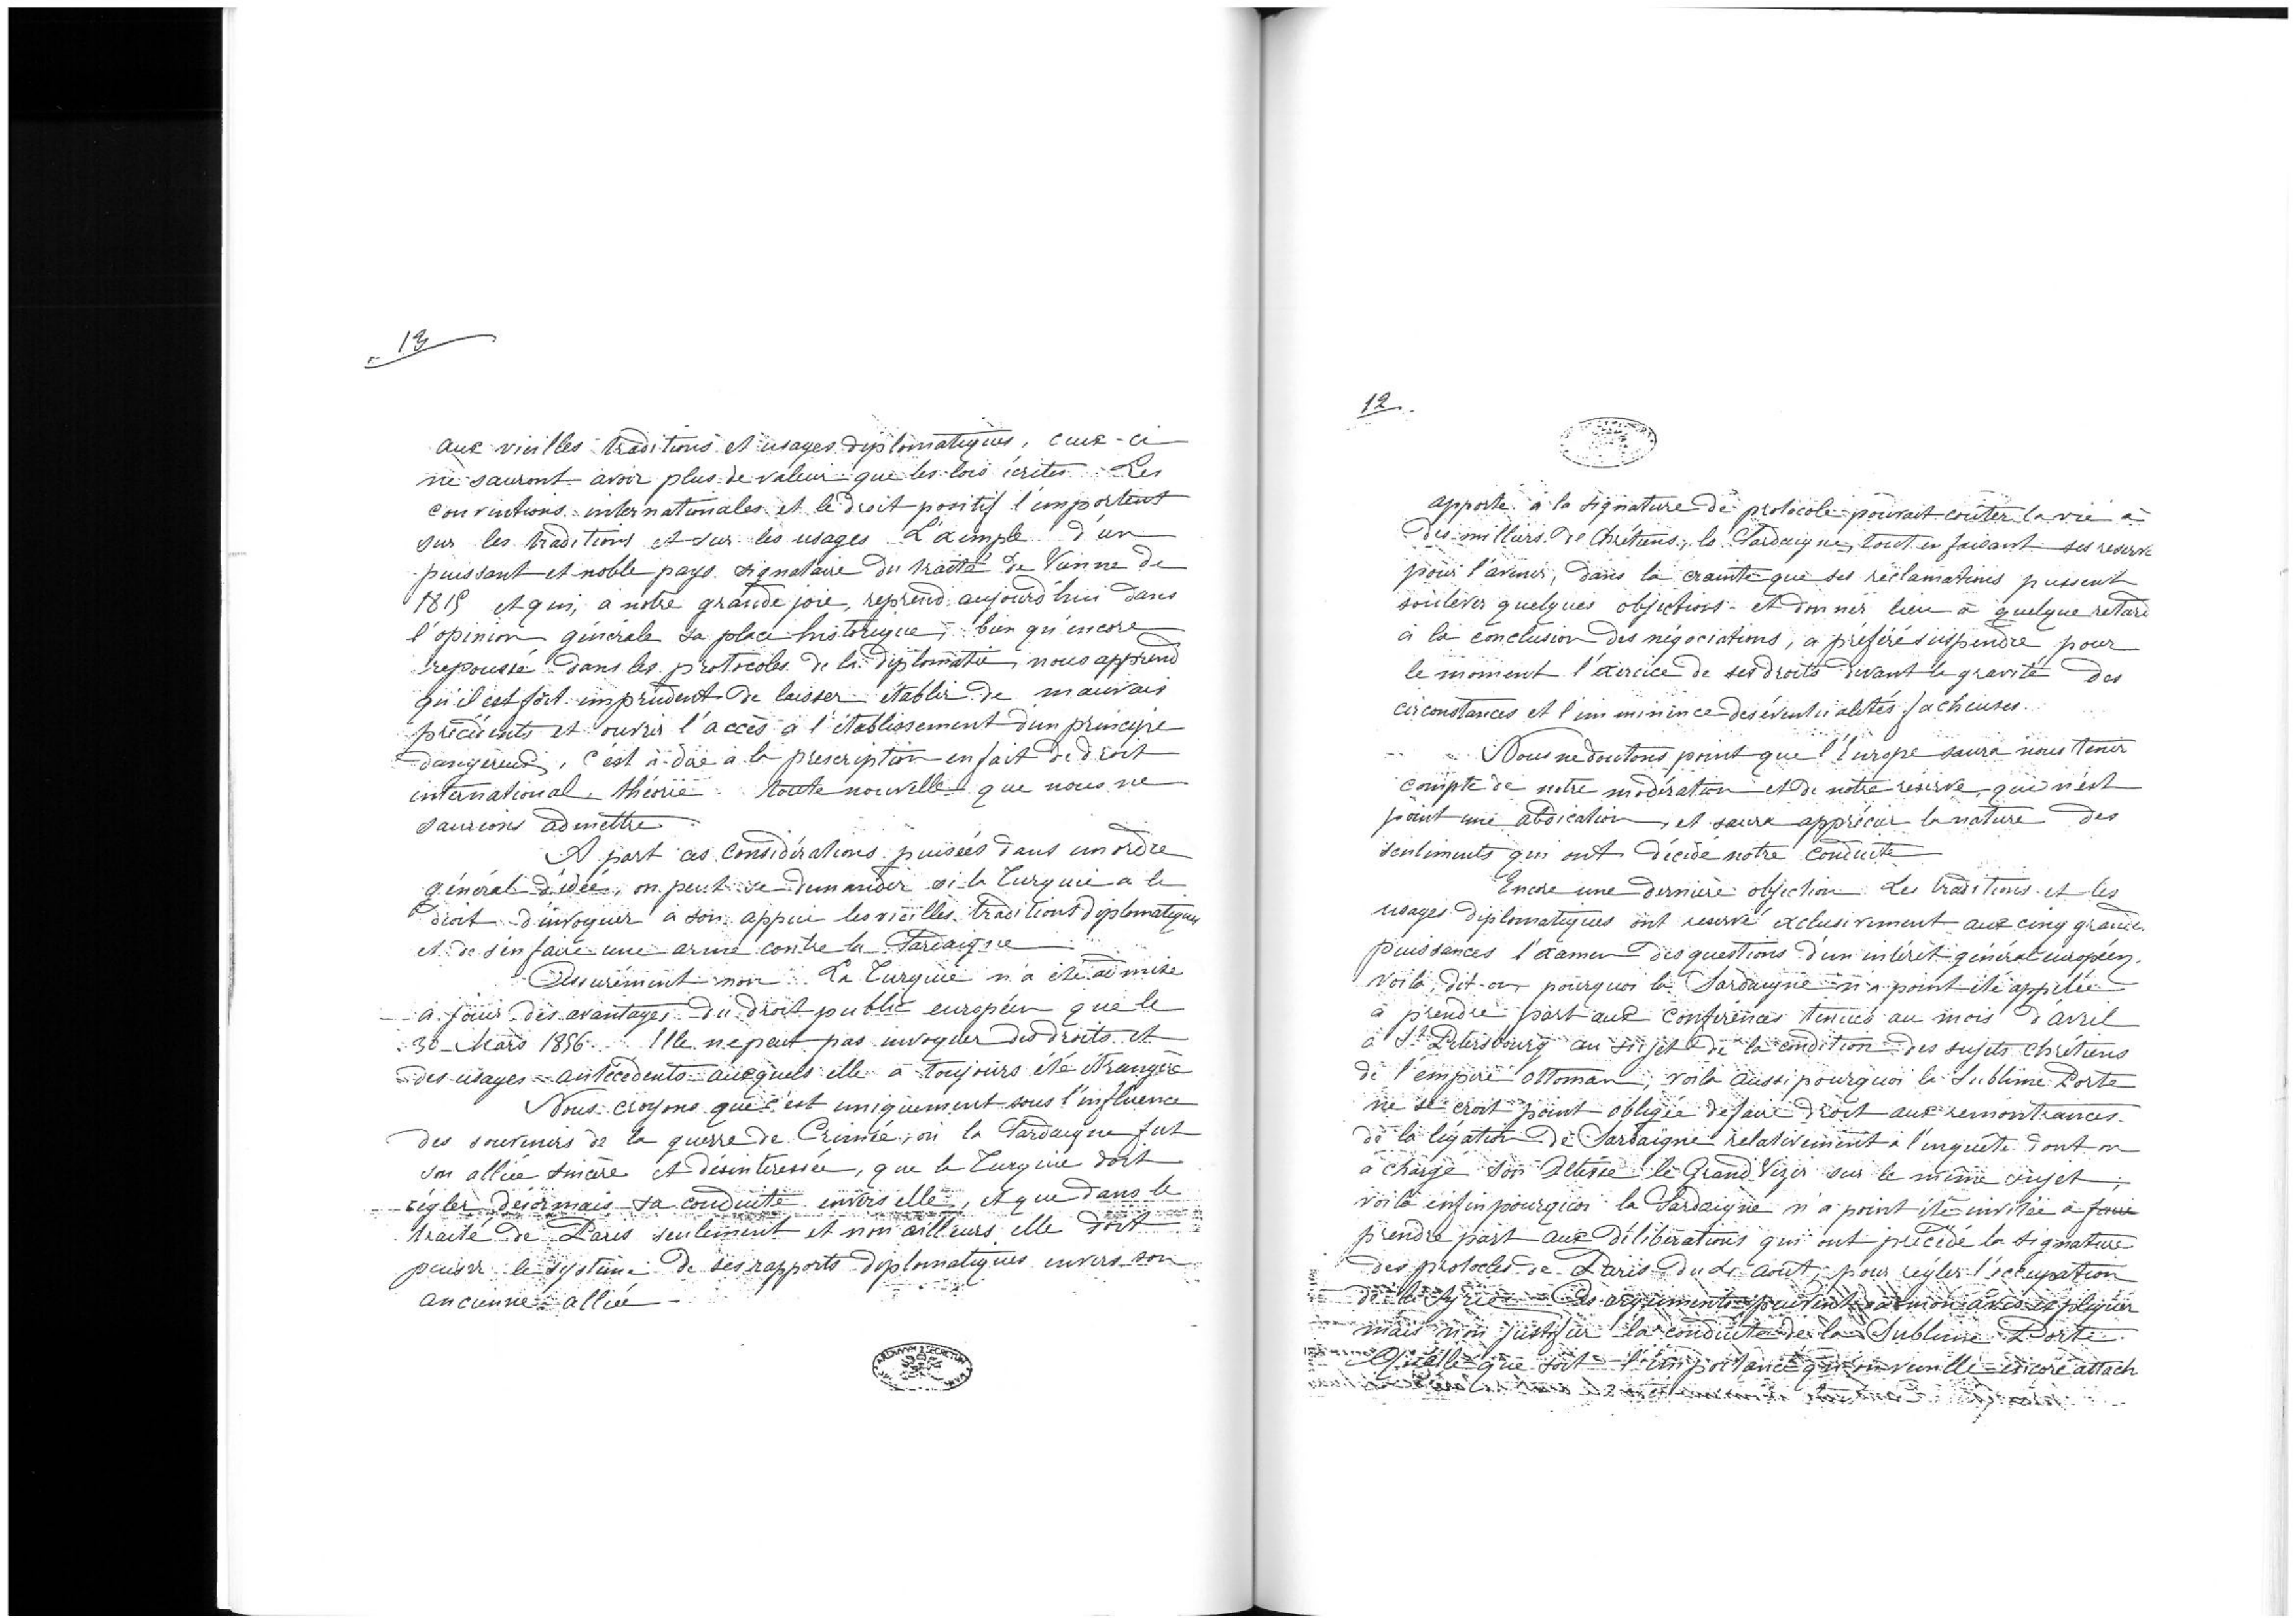 13
aux vieilles traditions et usages diplomatiques, ceux-ci
ne sauront avoir plus de valeur que les lois écrites. Les
conventions internationales et le droit positif l'importent
sur les traditions et sur les usages L'exemple d'un
puissant et noble pays signataire du traité de Vienne de
1815 et qui, à notre grande joie, reprend aujourd'hui dans
l'opinion générale sa place historique, bien qu'encore
repoussé dans les protocoles de la diplomatie, nous apprend
qu'il est fort imprudent de laisser établir de mauvais
précédents et ouvrir l'accès à l'établissement d'un principe
dangereux, c'est à-dire à la prescription en fait de droit
international, théorie toute nouvelle que nous ne
saurions admettre.
A part ces considérations puisées dans un ordre
général d'idée, on peut se demander si la Turquie a le
droit d'invoquer à son appui les vieilles traditions diplomatiques
et de s'en faire une arme contre la Sardaigne
Assurément non. La Turquie n'a été admise
à jouir des avantages du droit public européen que le
30 Mars 1856. Elle ne peut pas invoquer des droits et
des usages antécédents auxquels elle a toujours été étrangère
Nous croyons que c'est uniquement sous l'influence
des souvenirs de la guerre de Crimée, où la Sardaigne fut
son alliée sincère et désintéressée, que la Turquie doit
régler désormais sa conduite envers elle, et que dans le
traité de Paris seulement et non ailleurs elle doit
puiser le système de ses rapports diplomatiques envers son
ancienne alliée
12
apporté à la signature de protocole pouvait coûter la vie à
des milliers de Chrétiens, la Sardaigne, tout en faisant ses reserve
pour l'avenir, dans la crainte que ses réclamations pussent
soulever quelques objections et donner lieu à quelque retard
à la conclusion des négociations, a préféré suspendre pour
le moment l'exercice de ses droits devant la gravité des
circonstances et l'imminence des éventualités facheuses.
Nous ne doutons point que l'Europe saura nous tenir
compte de notre modération et de notre réserve, qui n'est
point une abdication, et saura apprécier la nature des
sentiments qui ont décidé notre conduite
Encore une dernière objection Les traditions et les
usages diplomatiques ont reservé exclusivement aux cinq grandes
puissances l'examen des questions d'un intérêt général européen.
voilà, dit-on, pourquoi la Sardaigne n'a point été appelée
à prendre part aux conférences tenues au mois d'avril
à St Pétersbourg au sujet de la condition des sujets chrétiens
de l'empire ottoman, voilà aussi pourquoi la Sublime Porte
ne se croit point obligée de faire droit aux remontrances
de la légation de Sardaigne relativement à l'enquête dont on
a chargé son Altesse le Grand Vizir sur le même sujet;
voilà enfin pourquoi la Sardaigne n'a point été invitée à faire
prendre part aux délibérations qui ont précédé la signature
des protocles de Paris du août, pour régler l'occupation
de la Syrie Ces arguments peuvent à mon avis expliquer
mais non justifier la conduite de la Sublime Porte.
Quelle que soit l'importance qu'on veuille encore attach